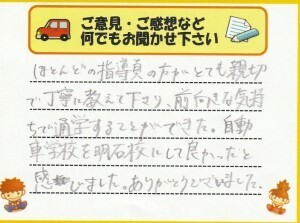 ご意見・ご感想など
何でもお聞かせ下さい
ほとんどの指導員の方がとても親切
で丁寧に教えて下さり、前向きな気持
ちで通学することができた。自動
車学校を明石校にして良かったと
感じました。ありがとうございました。